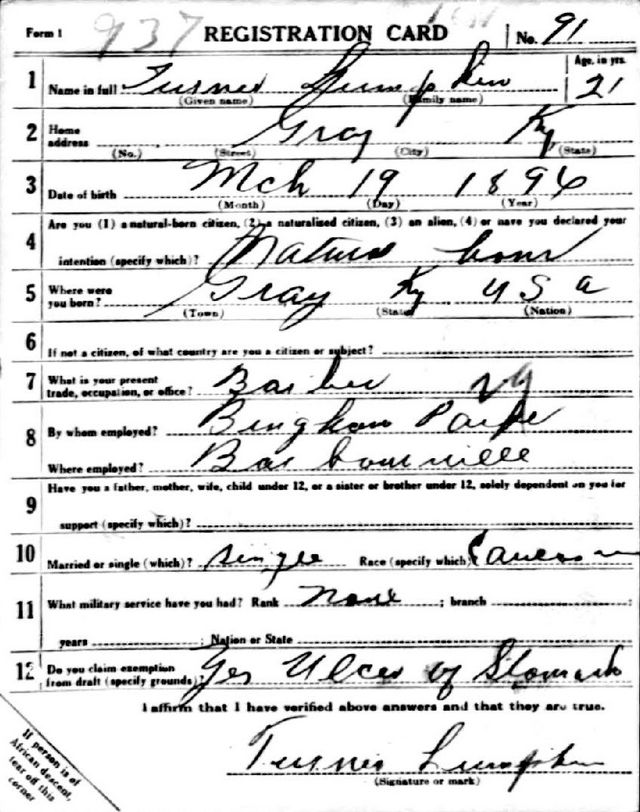 Form 1 937 REGISTRATION CARD No. 91
Age, in yrs.
1 Name in full Turner Lumpkin 21
(Given name) (Family name)
2 Home address Gray Ky
(No.) (Street) (City) (State)
3 Date of birth Mch 19 1896
(Month) (Day) (Year)
4 Are you (1) a natural-born citizen, (2) a naturalized citizen, (3) an alien, (4) or have you declared your
intention (specify which)? Natural born
5 Where were you born? Gray Ky USA
(Town) (State) (Nation)
6 If not a citizen, of what country are you a citizen or subject?
7 What is your present trade, occupation, or office? Barber
8 By whom employed? Bingham
Where employed? Barbourville
9 Have you a father, mother, wife, child under 12, or a sister or brother under 12, solely dependent on you for
support (specify which)?
10 Married or single (which)? single Race (specify which)
11 What military service have you had? Rank None ; branch ;
years ; Nation or State
12 Do you claim exemption from draft (specify grounds)? Yes Ulcer of Stomach
I affirm that I have verified above answers and that they are true.
Turner Lumpkin
(Signature or mark)
If person is of
African descent,
tear off this
corner